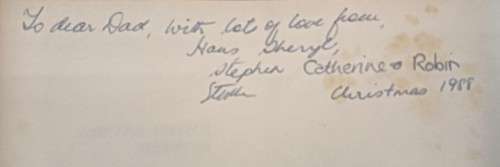 To dear Dad, with lot of love from,
Hans Sheryl,
Stephen Catherine & Robin
Christmas 1988